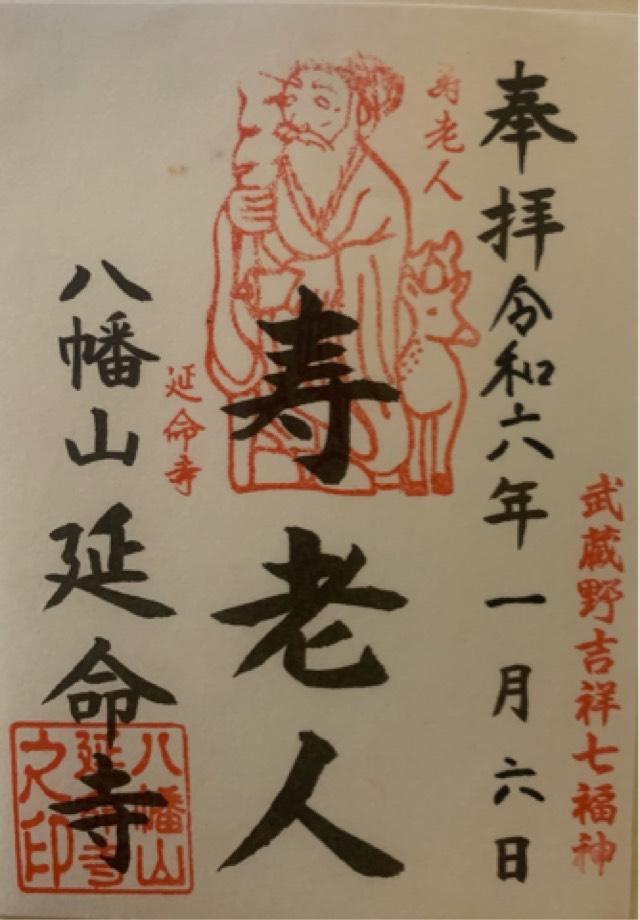 武蔵野吉祥七福神
奉拝 令和六年一月六日
寿老人
寿老人
延命寺
八幡山 延命寺
八幡山
延命寺
之印